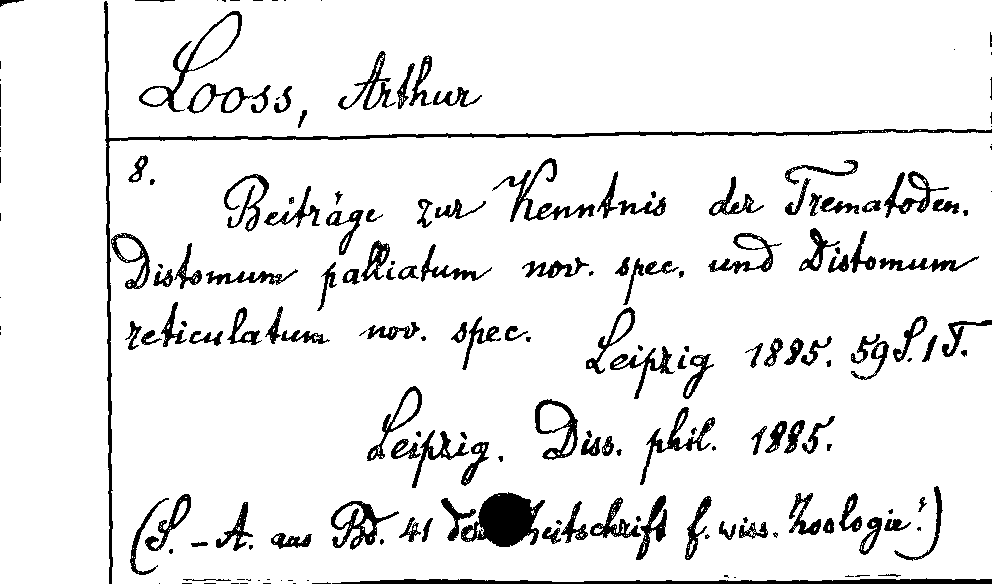 Looss, Arthur
8.
Beiträge zur Kenntnis der Trematoden.
Distomum palliatum nov. spec. und Distomum
reticulatum nov. spec.
Leipzig 1885. 59 S. 1 T.
Leipzig. Diss. phil. 1885.
(S.-A. aus Bd. 41 der Zeitschrift f. wiss. Zoologie!)